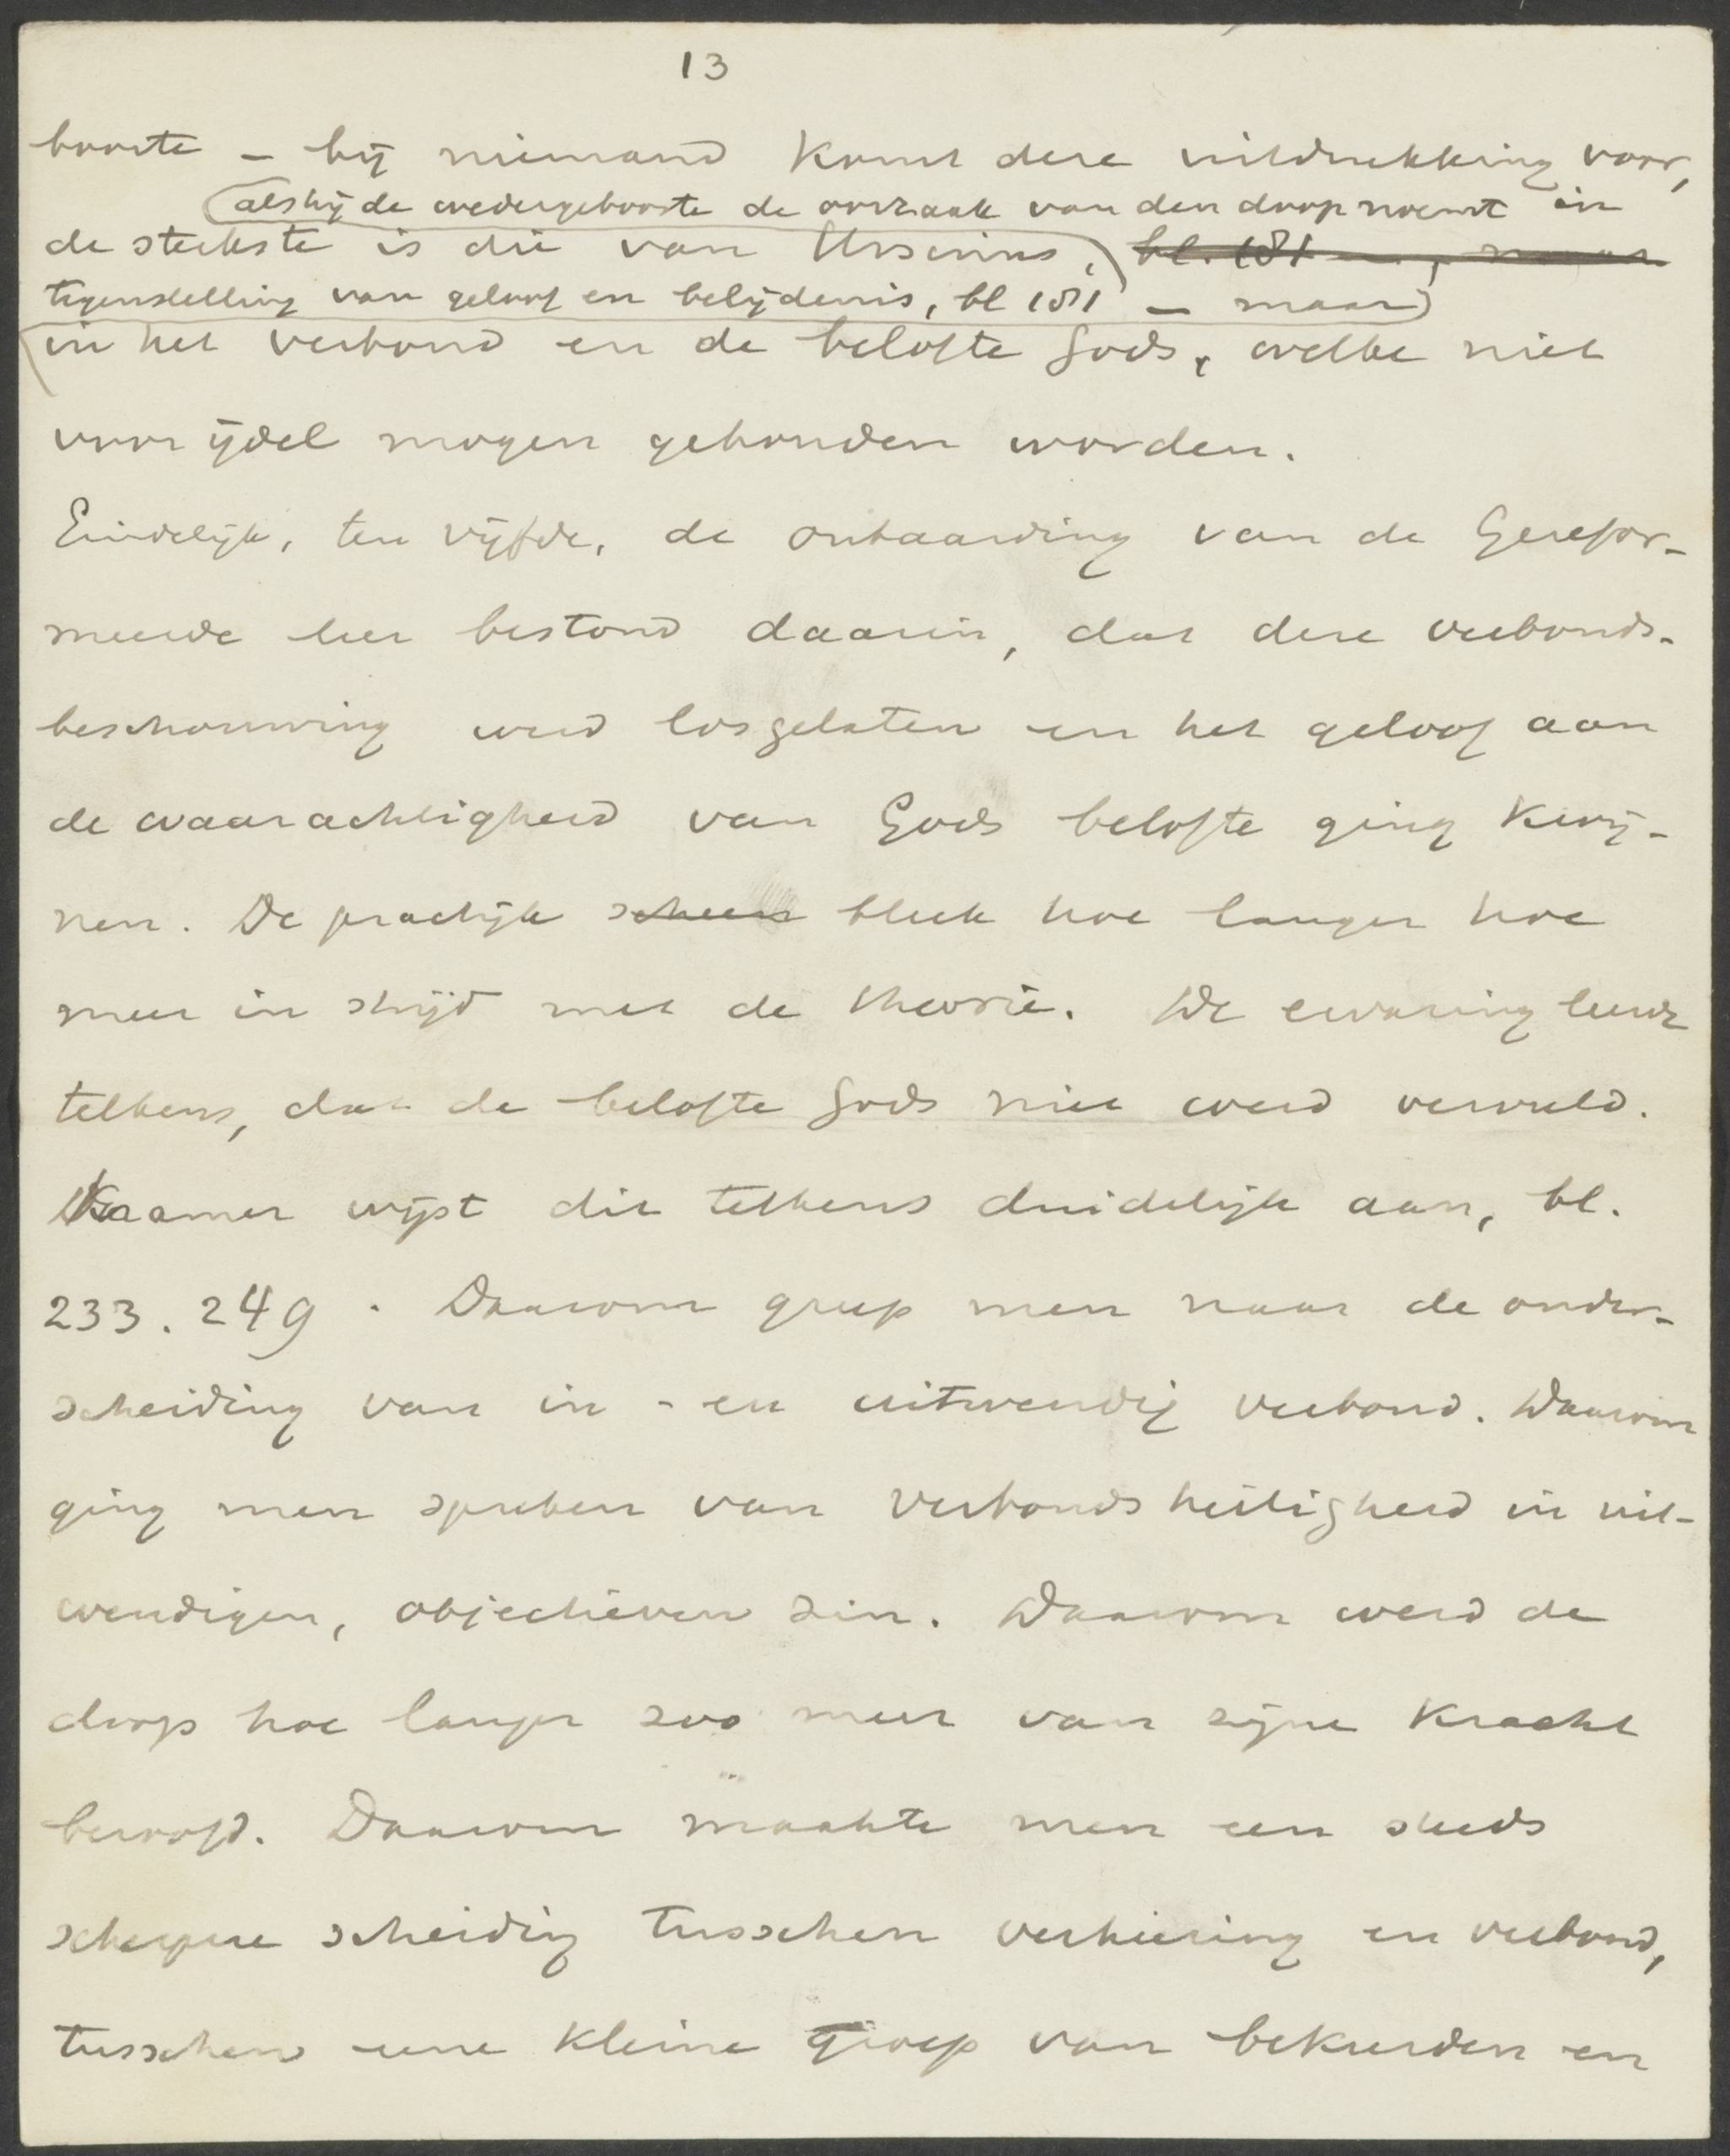 13
boorte – bij niemand komt deze uitdrukking voor,
als hij de wedergeboorte de oorzaak van den doop noemt in
de sterkste is die van Ursinus, bl. 181 –, maar
tegenstelling van geloof en belijdenis, bl 181 – maar
in het verbond en de belofte Gods, welke niet
voor ijdel mogen gehouden worden.
Eindelijk, ten vijfde, de ontaarding van de Gerefor-
meerde leer bestond daarin, dat deze verbonds-
beschouwing werd losgelaten en het geloof aan
de waarachtigheid van Gods belofte ging kwij-
nen. De practijk scheen bleek hoe langer hoe
meer in strijd met de theorie. De ervaring leerde
telkens, dat de belofte Gods niet werd vervuld.
Kramer wijst dit telkens duidelijk aan, bl.
233. 249. Daarom greep men naar de onder-
scheiding van in- en uitwendig verbond. Daarom
ging men spreken van verbondsheiligheid in uit-
wendigen, objectieven zin. Daarom werd de
doop hoe langer zoo meer van zijne kracht
beroofd. Daarom maakte men een steeds
scherpere scheiding tusschen verkiezing en verbond,
tusschen eene kleine groep van bekeerden en